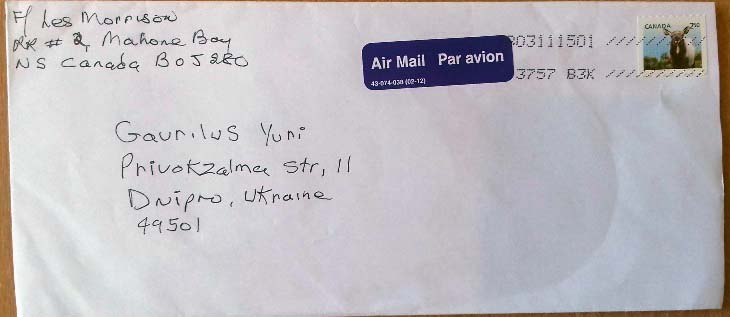 F/ Les Morrison
RR # 2, Mahone Bay
NS Canada B0J 2E0
Air Mail Par avion
43-074-038 (02-12)
03111501
3757 B3K
CANADA
Gaurilus Yuri
Privokzalmea str, 11
Dnipro, Ukraine
49501